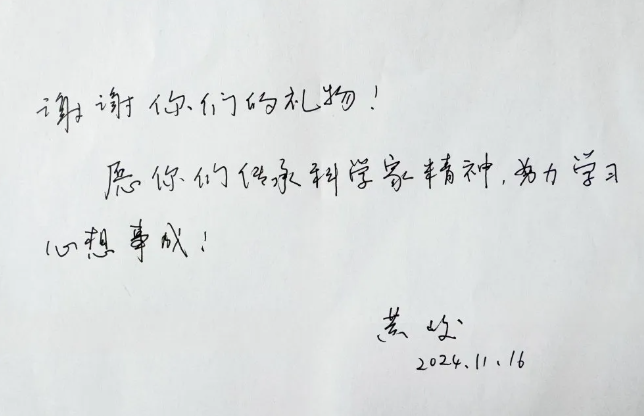 谢谢你们的礼物！
愿你们传承科学家精神，努力学习
心想事成！
黄
2024.11.16